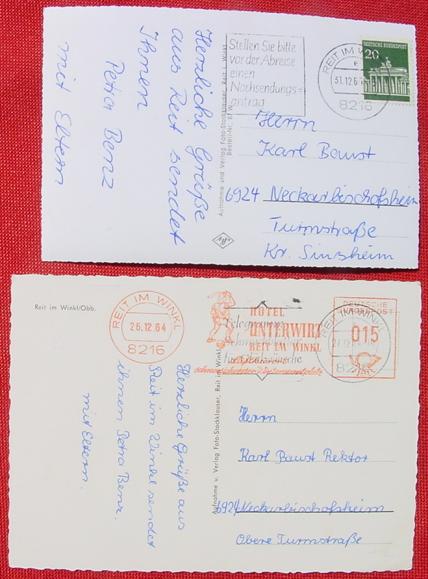 Herzliche Grüße
aus Reit sendet
Ihnen
Petra Benz
mit Eltern
Stellen Sie bitte
vor der Abreise
einen
Nachsendungs=
antrag
REIT IM WINKL
8216
DEUTSCHE BUNDESPOST
20
Aufnahme und Verlag Foto-Stocklauser, Reit i. Winkl
Herrn
Karl Baust
6924 Neckarbischofsheim
Turmstraße
Kr. Sinsheim
Reit im Winkl/Obb.
REIT IM WINKL
26.12.64
8216
HOTEL
UNTERWIRT
REIT IM WINKL
DEUTSCHE
BUNDESPOST
015
REIT IM WINKL
8216
Herzliche Grüße aus
Reit im Winkl sendet
ihnen Petra Benz.
mit Eltern.
Aufnahme u. Verlag Foto-Stocklauser, Reit im Winkl
Herrn
Karl Baust Rektor
6924 Neckarbischofsheim
Obere Turmstraße